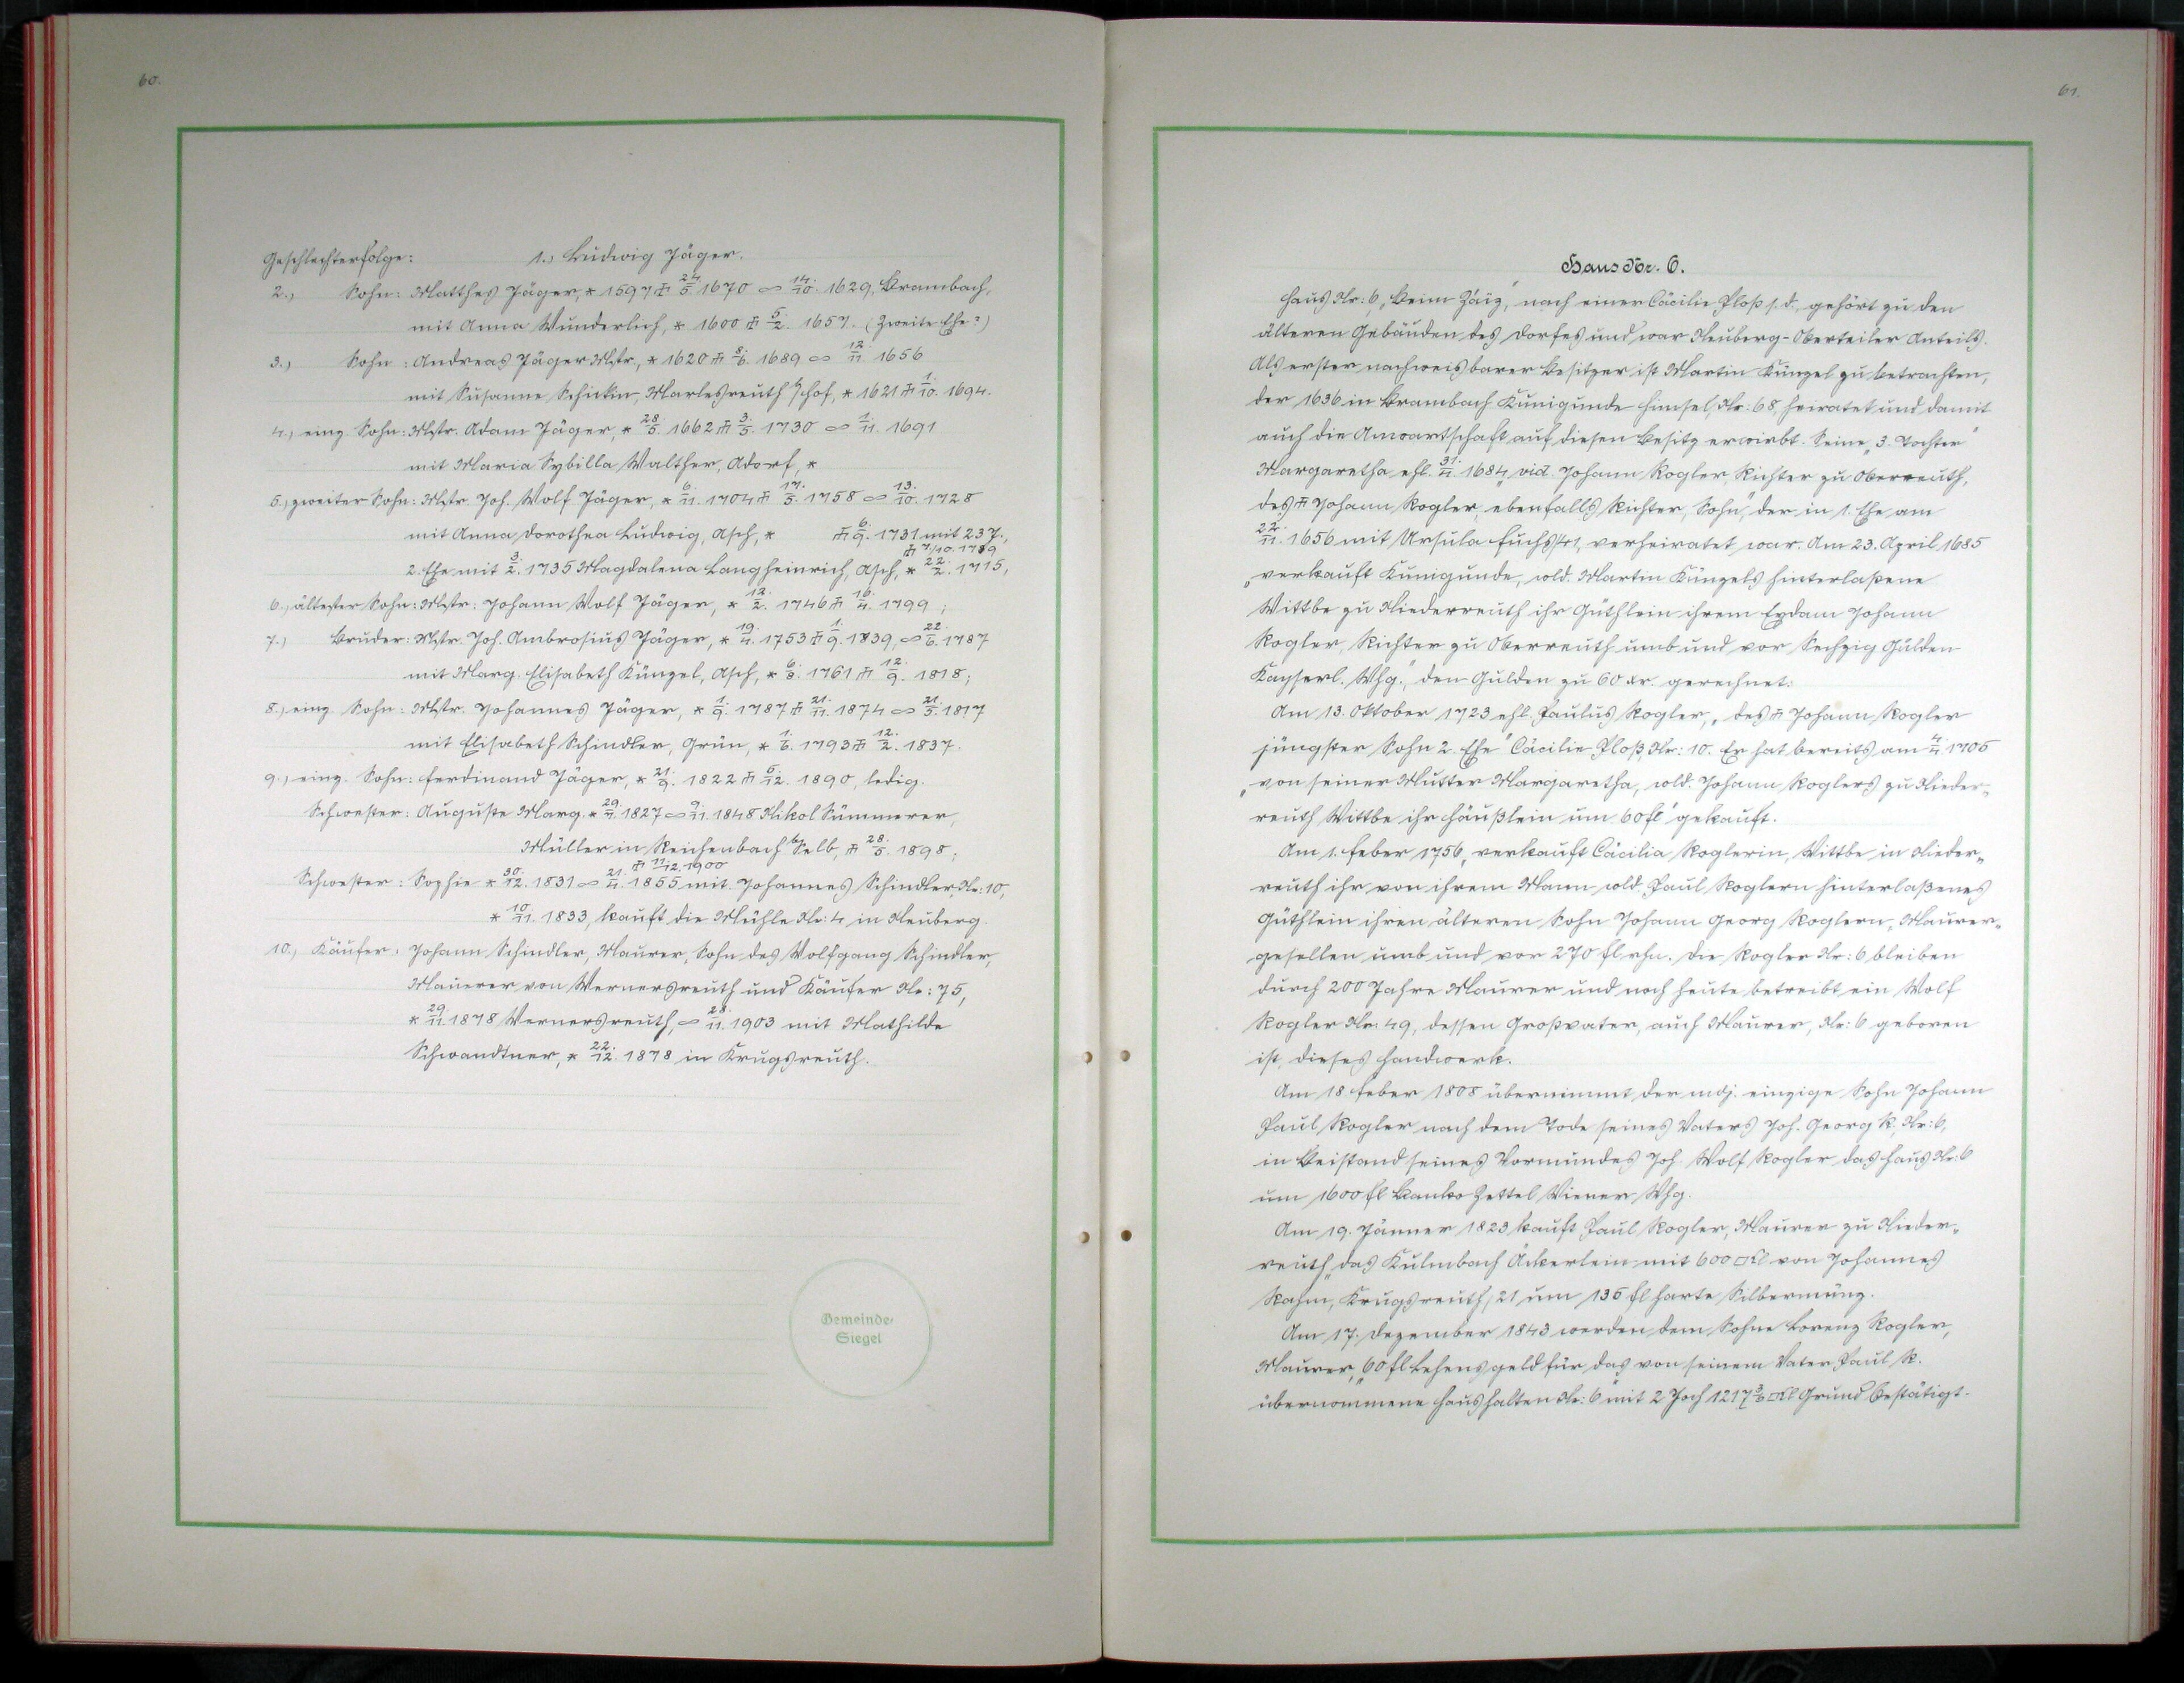 60.
Geschlechterfolge: 1.) Ludwig Jäger.
2.) Sohn: Matthes Jäger, * 1597 ⚰ 24./5. 1670 ∞ 14./10. 1629, Brambach,
mit Anna Wunderlich, * 1600 ⚰ 5./2. 1657. (Zweite Ehe?)
3.) Sohn: Andreas Jäger Mstr, * 1620 ⚰ 8./6. 1689 ∞ 12./11. 1656
mit Susanne Schickin, Marlesreuth b/Hof, * 1621 ⚰ 1./10. 1694.
4.) einz. Sohn: Mstr. Adam Jäger, * 28./5. 1662 ⚰ 3./5. 1730 ∞ 1./11. 1691
mit Maria Sybilla Walther, Adorf, *
5.) zweiter Sohn: Mstr. Joh. Wolf Jäger, * 6./11. 1704 ⚰ 17./5. 1758 ∞ 13./10. 1728
mit Anna Dorothea Ludwig, Asch, * ⚰ 6./9. 1731 mit 23 J.,
⚰ 7/10. 1789
2. Ehe mit 3./2. 1735 Magdalena Langheinrich, Asch, * 22./2. 1715,
6.) ältester Sohn: Mstr. Johann Wolf Jäger, * 12./2. 1746 ⚰ 16./4. 1799;
7.) Bruder: Mstr. Joh. Ambrosius Jäger, * 19./4. 1753 ⚰ 1./9. 1839, ∞ 22./6. 1787
mit Marg. Elisabeth Künzel, Asch, * 6./8. 1761 ⚰ 12./9. 1818;
8.) einz. Sohn: Mstr. Johannes Jäger, * 1./9. 1787 ⚰ 21./11. 1874 ∞ 21./5. 1817
mit Elisabeth Schindler, Grün, * 1./6. 1793 ⚰ 12./2. 1837.
9.) einz. Sohn: Ferdinand Jäger, * 21./9. 1822 ⚰ 5./12. 1890, ledig.
Schwester: Auguste Marg. * 29./7. 1827 ∞ 9./11. 1848 Nikol Summerer,
Müller in Reichenbach b/Selb, ⚰ 28./5. 1898;
⚰ 11/12. 1900
Schwester: Sophie * 30./12. 1831 ∞ 21./4. 1855 mit Johannes Schindler, Nr: 10,
* 10./11. 1833, kauft die Mühle Nr: 4 in Neuberg.
10.) Käufer: Johann Schindler, Maurer, Sohn des Wolfgang Schindler,
Maurer von Wernersreuth und Käufer Nr: 75,
* 29./11. 1878 Wernersreuth, ∞ 28./11. 1903 mit Mathilde
Schwandtner, * 22./12. 1878 in Krugsreuth.
Gemeinde-
Siegel
61.
Haus Nr. 6.
Haus Nr: 6, „Beim Zäiz", nach einer Cäcilie Ploß s. d., gehört zu den
älteren Gebäuden des Dorfes und war Neuberg-Oberteiler Anteils.
Als erster nachweisbarer Besitzer ist Martin Künzel zu betrachten,
der 1636 in Brambach Kunigunde Himsel, Nr: 68, heiratet und damit
auch die Anwartschaft auf diesen Besitz erwirbt. Seine „3. Tochter"
Margaretha ehl. 31./4. 1684 „vid. Johann Rogler, Richter zu Oberreuth,
des ⚰ Johann Rogler, ebenfalls Richter, Sohn", der in 1. Ehe am
22./11. 1656 mit Ursula Fuchs/41, verheiratet war. Am 23. April 1685
„verkauft Kunigunde, wld. Martin Künzels hinterlaßene
Wittbe zu Niederreuth ihr Güthlein ihrem Eydam Johann
Rogler, Richter zu Oberreuth umb und vor Sechzig Gulden
Kayserl. Whg.", den Gulden zu 60 xr. gerechnet.
Am 13. Oktober 1723 ehl. Paulus Rogler, „des ⚰ Johann Rogler
jüngster Sohn 2. Ehe" Cäcilie Ploß, Nr: 10. Er hat bereits am 4./4. 1705
„von seiner Mutter Margaretha, wld. Johann Roglers zu Nieder-
reuth Wittbe ihr Häußlein um 60 fl" gekauft.
Am 1. Feber 1756 „verkauft Cäcilia Roglerin, Wittbe in Nieder-
reuth ihr von ihrem Mann wld Paul Roglern hinterlaßenes
Güthlein ihren älteren Sohn Johann Georg Roglern, Maurer-
gesellen umb und vor 270 fl rhn. Die Rogler Nr: 6 bleiben
durch 200 Jahre Maurer und noch heute betreibt ein Wolf
Rogler Nr: 49, dessen Großvater, auch Maurer, Nr: 6 geboren
ist, dieses Handwerk.
Am 18. Feber 1808 übernimmt der mdj. einzige Sohn Johann
Paul Rogler nach dem Tode seines Vaters Joh. Georg R. Nr: 6,
in Beistand seines Vormundes Joh. Wolf Rogler das Haus Nr: 6
um 1600 fl Banko Zettel Wiener Whg.
Am 19. Jänner 1823 kauft Paul Rogler, Maurer zu Nieder-
reuth „das Kulmbach Äckerlein mit 600 □Kl von Johannes
Rahm, Krugsreuth/21 um 135 fl harte Silbermünz.
Am 17. Dezember 1843 werden dem Sohne Lorenz Rogler,
Maurer, „60 fl Lehensgeld für das von seinem Vater Paul R.
übernommene Haushalten Nr: 6 mit 2 Joch 1217 3/6 □Kl Grund bestätigt.